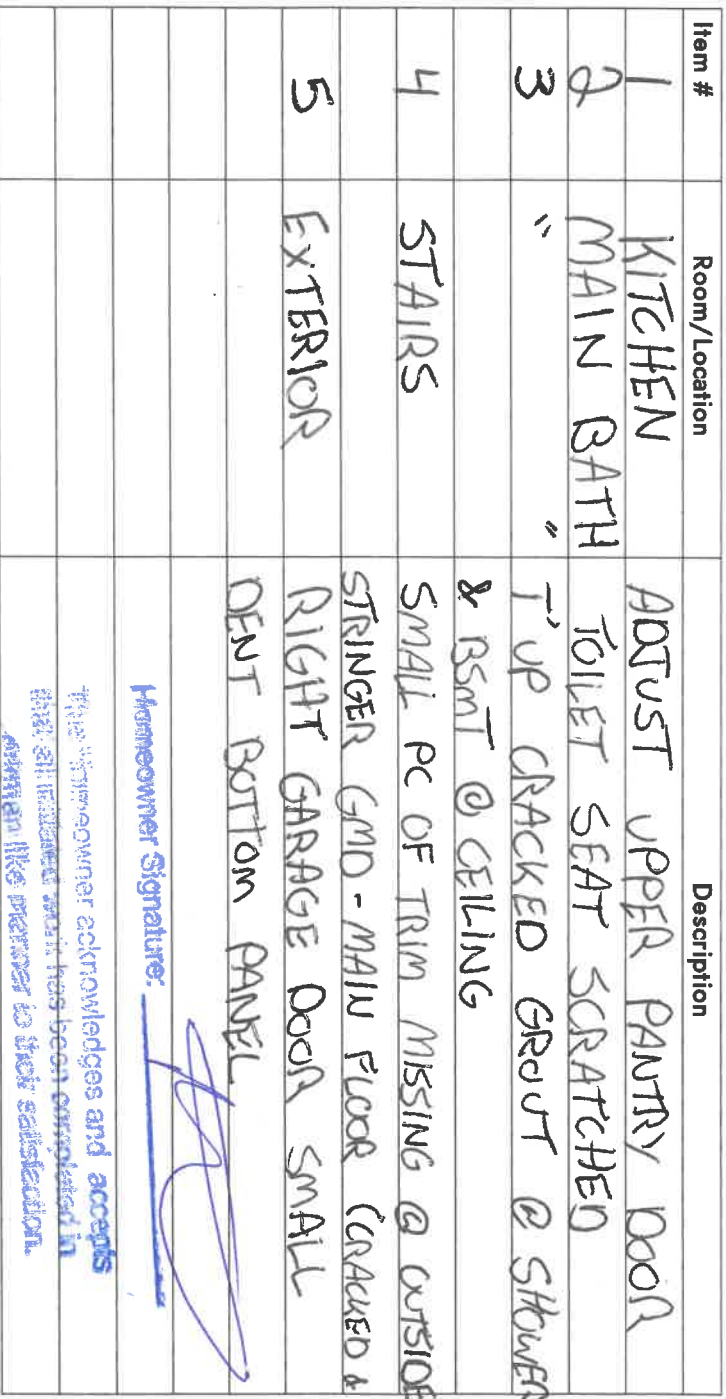 Item # Room/Location Description
1 KITCHEN ADJUST UPPER PANTRY DOOR
2 MAIN BATH TOILET SEAT SCRATCHED
3 " " T'UP CRACKED GROUT @ SHOWER
& BSMT @ CEILING
4 STAIRS SMALL PC OF TRIM MISSING @ OUTSIDE
STRINGER GMD - MAIN FLOOR (CRACKED &
5 EXTERIOR RIGHT GARAGE DOOR SMALL
DENT BOTTOM PANEL
Homeowner Signature:
The Homeowner acknowledges and accepts
that all initialed work has been completed in
like manner to their satisfaction.